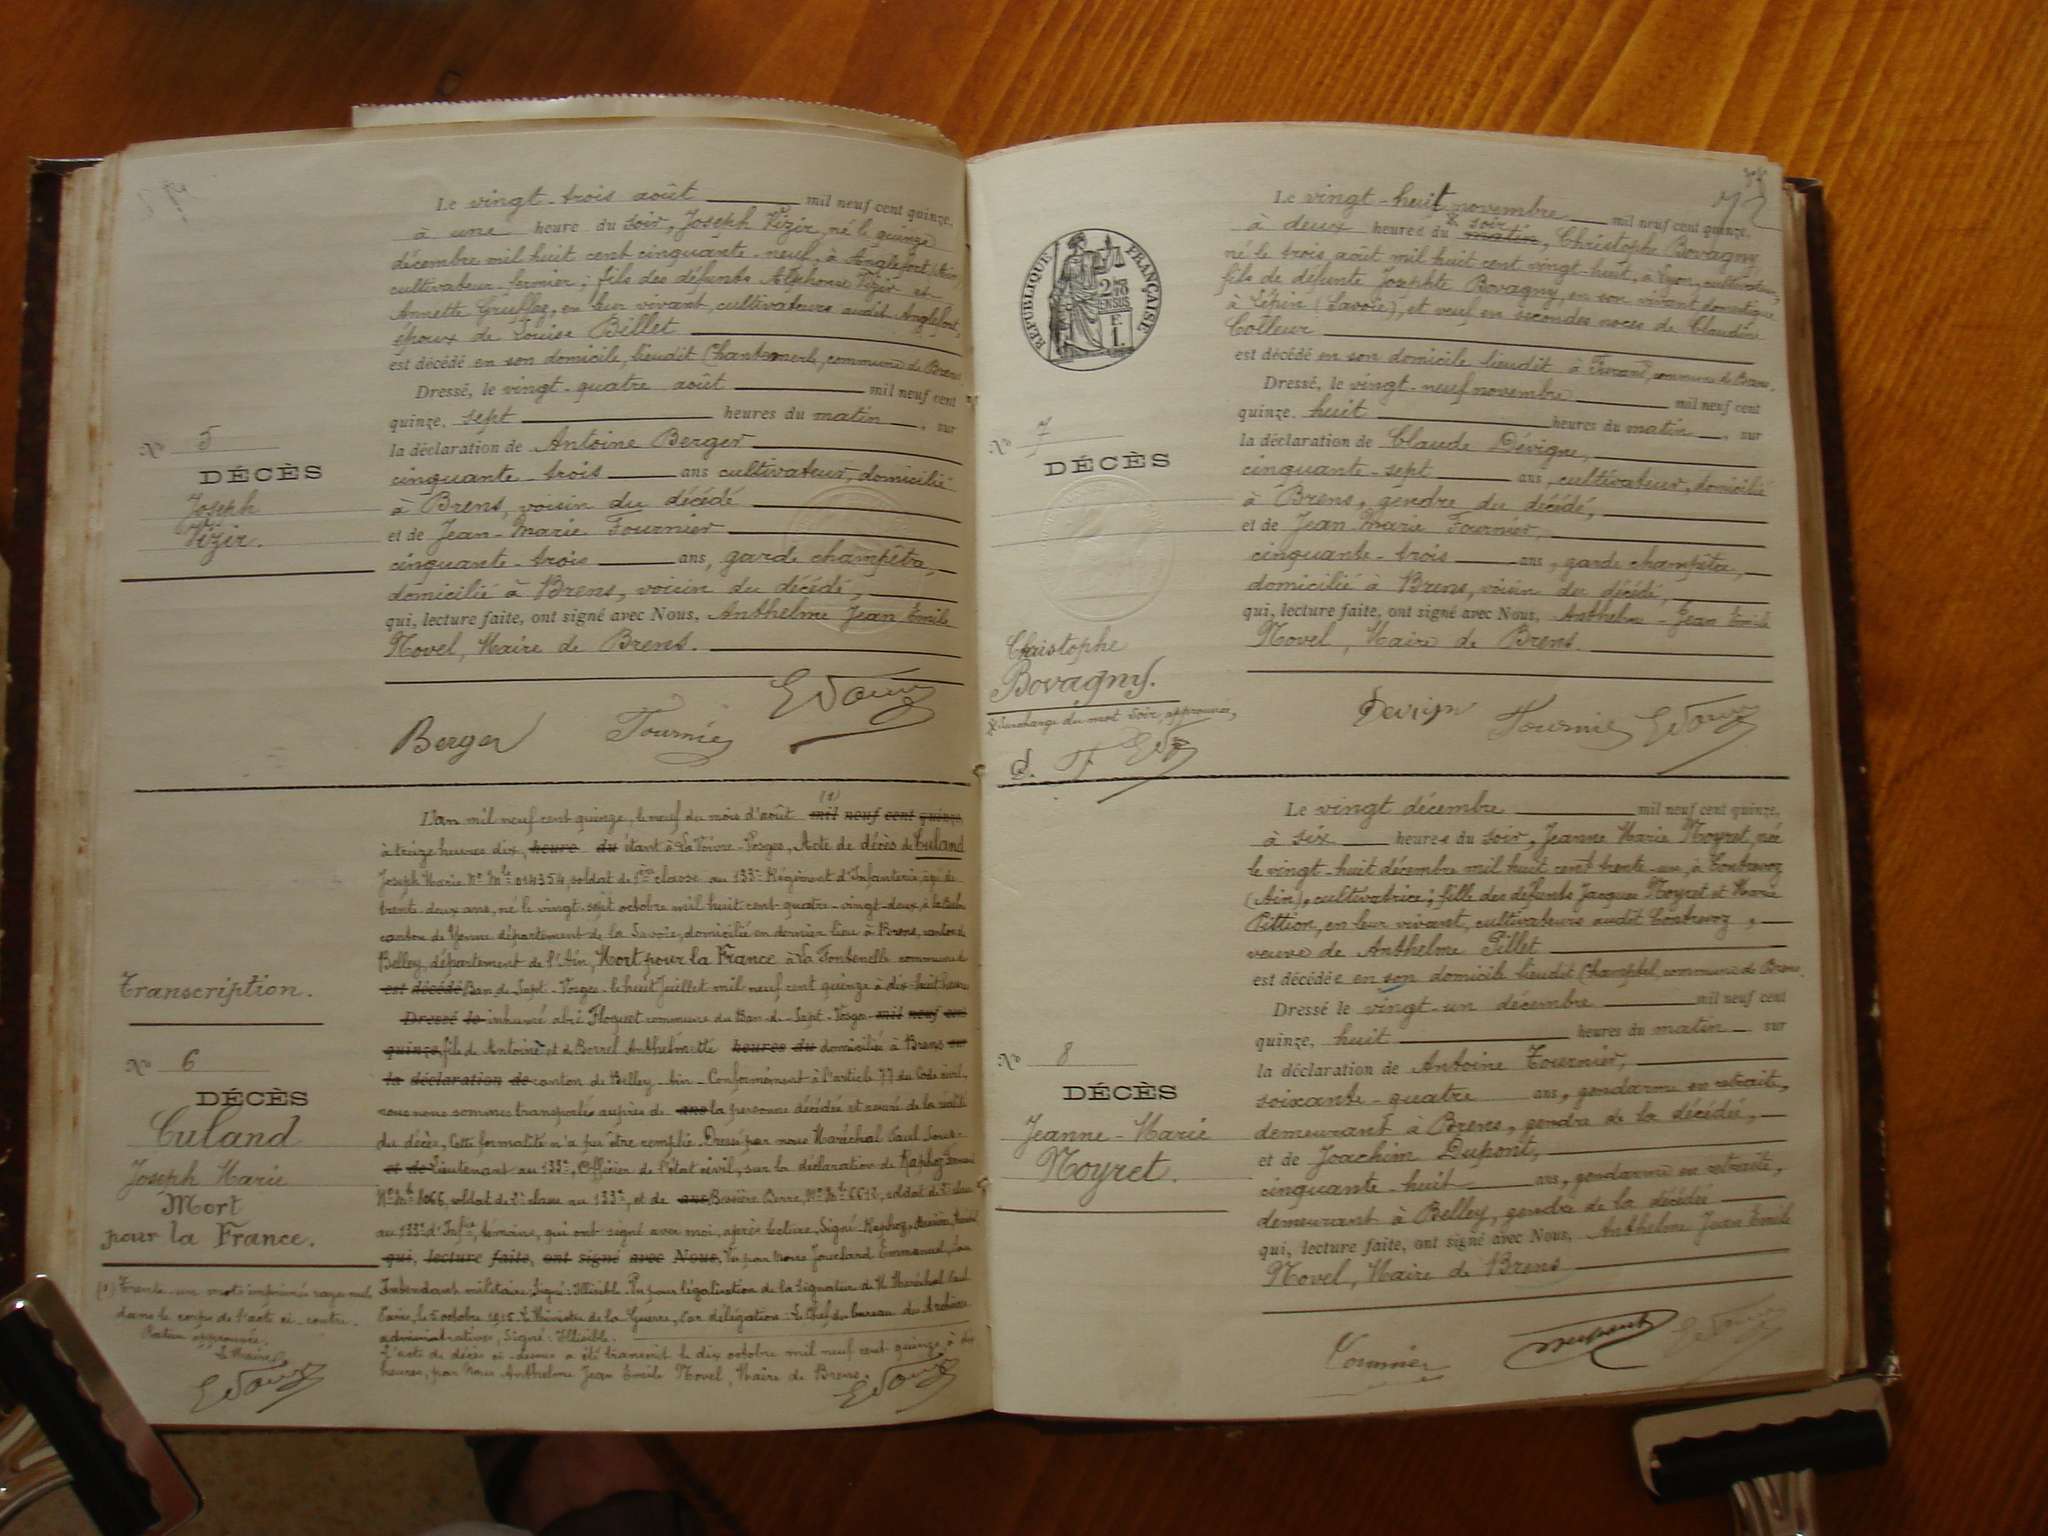 Le vingt-trois août mil neuf cent quinze,
à une heure du soir, Joseph Vizir, né le quinze
décembre mil huit cent cinquante-neuf, à Anglefort (Ain)
cultivateur-fermier; fils des défunts Alphonse Vizir et
Annette Gruffaz, en leur vivant, cultivateurs audit Anglefort,
époux de Louise Billet
est décédé en son domicile, lieudit Chantemerle, commune de Brens
Dressé, le vingt-quatre août mil neuf cent
quinze, sept heures du matin, sur
la déclaration de Antoine Berger
cinquante-trois ans cultivateur, domicilié
à Brens, voisin du décédé
et de Jean-Marie Fournier
cinquante-trois ans, garde champêtre,
domicilié à Brens, voisin du décédé,
qui, lecture faite, ont signé avec Nous, Anthelme Jean Emile
Novel, Maire de Brens.
Nº 5
DÉCÈS
Joseph
Vizir.
Berger Fournier
L'an mil neuf cent quinze, le neuf du mois d'août (1) mil neuf cent quinze
à treize heures dix, heure du étant à La Voivre-Vosges, Acte de décès de Culand
Joseph Marie Nº Mle 014354, soldat de 1ère classe au 133e Régiment d'Infanterie, âgé de
trente-deux ans, né le vingt-sept octobre mil huit cent-quatre-vingt-deux, à la Balme
canton de Yenne département de la Savoie, domicilié en dernier lieu à Brens, canton de
Belley, département de l'Ain, Mort pour la France à La Fontenelle commune de
est décédé Ban de Sapt-Vosges-le huit Juillet mil neuf cent quinze à dix-huit heures
Dressé le inhumé abri Floquet commune du Ban-d-Sapt-Vosges mil neuf cent
quinze, fils de Antoine et de Borrel Anthelmette heures du domiciliés à Brens sur
la déclaration de canton de Belley-Ain-Conformément à l'article 77 du Code civil,
nous nous sommes transportés auprès de ans la personne décédée et assuré de la réalité
du décès, Cette formalité n'a pu être remplie. Dressé par nous Maréchal Paul Sous-
et de Lieutenant au 133e, Officier de l'état civil, sur la déclaration de Raphoz
Nº Mle 8066, soldat de 2e classe au 133e, et de ans Bussière Pierre, Nº Mle 6612, soldat de 2e classe
au 133e d'Infie, témoins, qui ont signé avec moi, après lecture, Signé: Raphoz, Bussière, Maréchal
qui, lecture faite, ont signé avec Nous, Vu par Nous Jouveland Emmanuel, Sous
Intendant militaire, Signé: Illisible. Vu pour légalisation de la signature de M. Maréchal Paul
Paris, le 5 octobre 1915. Le Ministre de la Guerre, Par délégation: Le Chef du bureau des Archives
administratives, Signé: Illisible.
L'acte de décès ci-dessus a été transcrit le dix octobre mil neuf cent quinze, à dix
heures, par Nous Anthelme Jean Emile Novel, Maire de Brens.
Transcription.
Nº 6
DÉCÈS
Culand
Joseph Marie
Mort
pour la France.
(1) Trente-un mots imprimés rayés nuls
dans le corps de l'acte ci-contre.
Rature approuvée.
Le Maire,
Le vingt-huit novembre mil neuf cent quinze,
à deux heures du matin soir, Christophe Bovagny
né le trois août mil huit cent vingt-huit, à Lyon, cultivateur,
fils de défunte Josephte Bovagny, en son vivant domestique
à Lépin (Savoie), et veuf en secondes noces de Claudine
Colleur
est décédé en son domicile lieudit à commune de Brens.
Dressé, le vingt-neuf novembre mil neuf cent
quinze, huit heures du matin, sur
la déclaration de Claude Dévigne,
cinquante-sept ans, cultivateur, domicilié
à Brens, gendre du décédé,
et de Jean Marie Fournier,
cinquante-trois ans, garde champêtre,
domicilié à Brens, voisin du décédé,
qui, lecture faite, ont signé avec Nous, Anthelme-Jean Emile
Novel, Maire de Brens.
RÉPUBLIQUE FRANÇAISE
Nº 7
DÉCÈS
Christophe
Bovagny.
Surcharge du mot soir, approuvée,
Devign Fournier
Le vingt décembre mil neuf cent quinze,
à six heures du soir, Jeanne Marie Noyret, née
le vingt-huit décembre mil huit cent trente-un, à Contrevoz
(Ain), cultivatrice; fille des défunts Jacques Noyret et Marie
Pittion, en leur vivant, cultivateurs audit Contrevoz,
veuve de Anthelme Pillet
est décédée en son domicile lieudit Champtel commune de Brens.
Dressé le vingt-un décembre mil neuf cent
quinze, huit heures du matin sur
la déclaration de Antoine Tournier,
soixante-quatre ans, gendarme en retraite,
demeurant à Brens, gendre de la décédée,
et de Joachim Dupont,
cinquante-huit ans, gendarme en retraite,
demeurant à Belley, gendre de la décédée
qui, lecture faite, ont signé avec Nous, Anthelme Jean Emile
Novel, Maire de Brens
Nº 8
DÉCÈS
Jeanne-Marie
Noyret.
Tournier Dupont